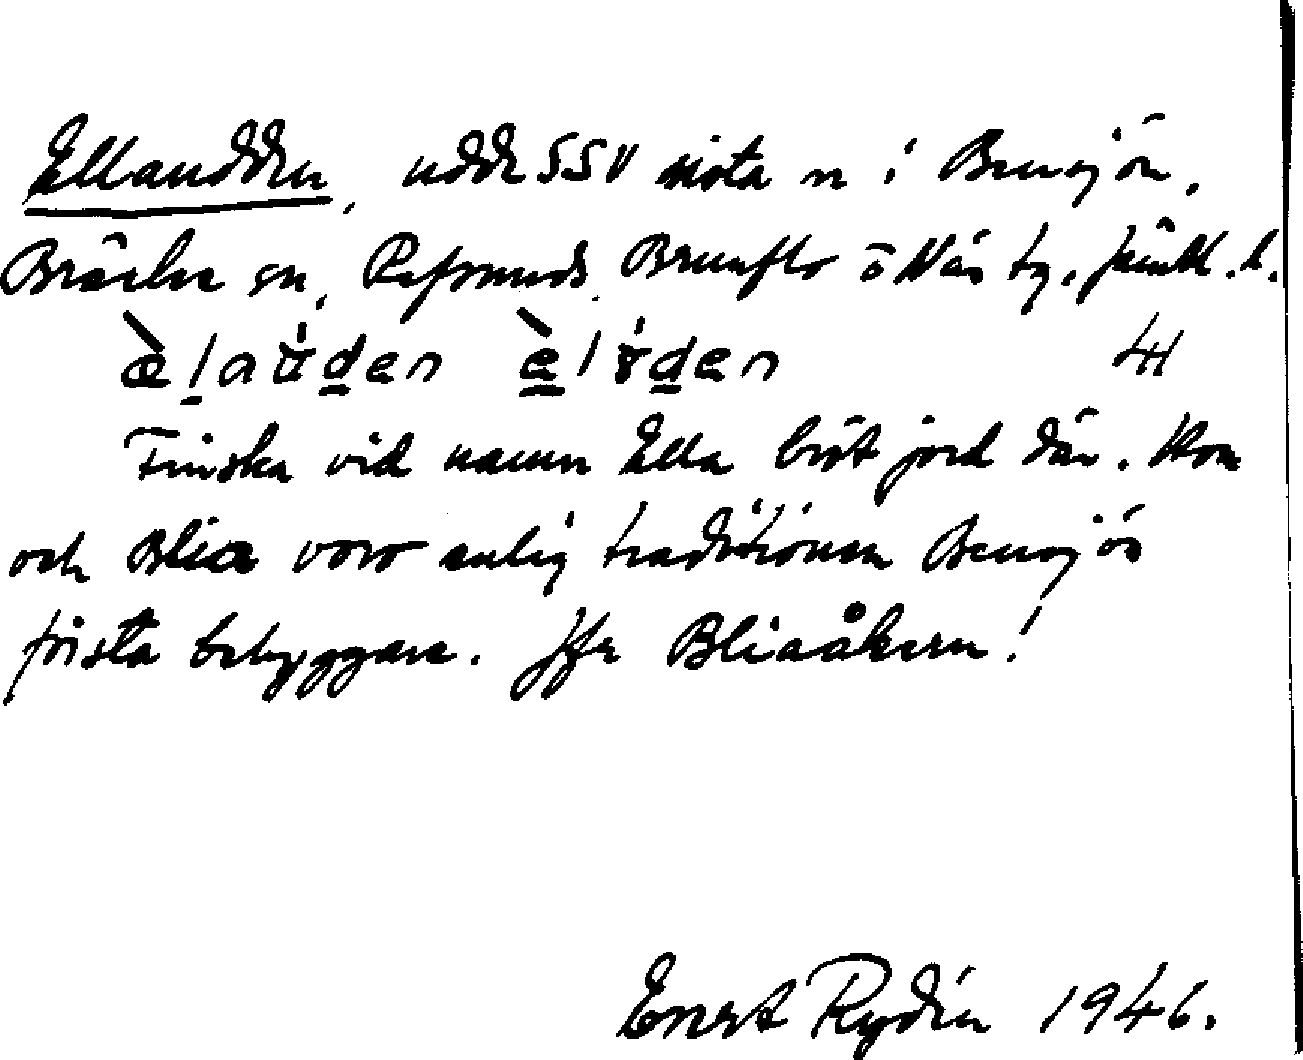 Ellaudden, udde SSV sista n i Bensjön,
Bräcke sn, Refsunds, Brunflo o Näs tg, Jämtl. l.
æ̀laʉ́den è̱lʉ́den
Finska vid namn Ella bröt jord där. Hon
och Blia voro enlig traditionen Bensjös
första bebyggare. Jfr Bliaåkern!
Ernst Rydén 1946.